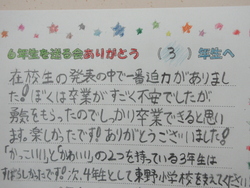 6年生を送る会ありがとう （3）年生へ
在校生の発表の中で一番迫力がありまし
た!ぼくは卒業がすごく不安でしたが
勇気をもらったのでしっかり卒業できると思い
ます。楽しかったです!ありがとうございました!
「かっこいい」と「かわいい」の2つを持っている3年生は
すばらしかったです!次、4年生として東野小学校を支えてくだ